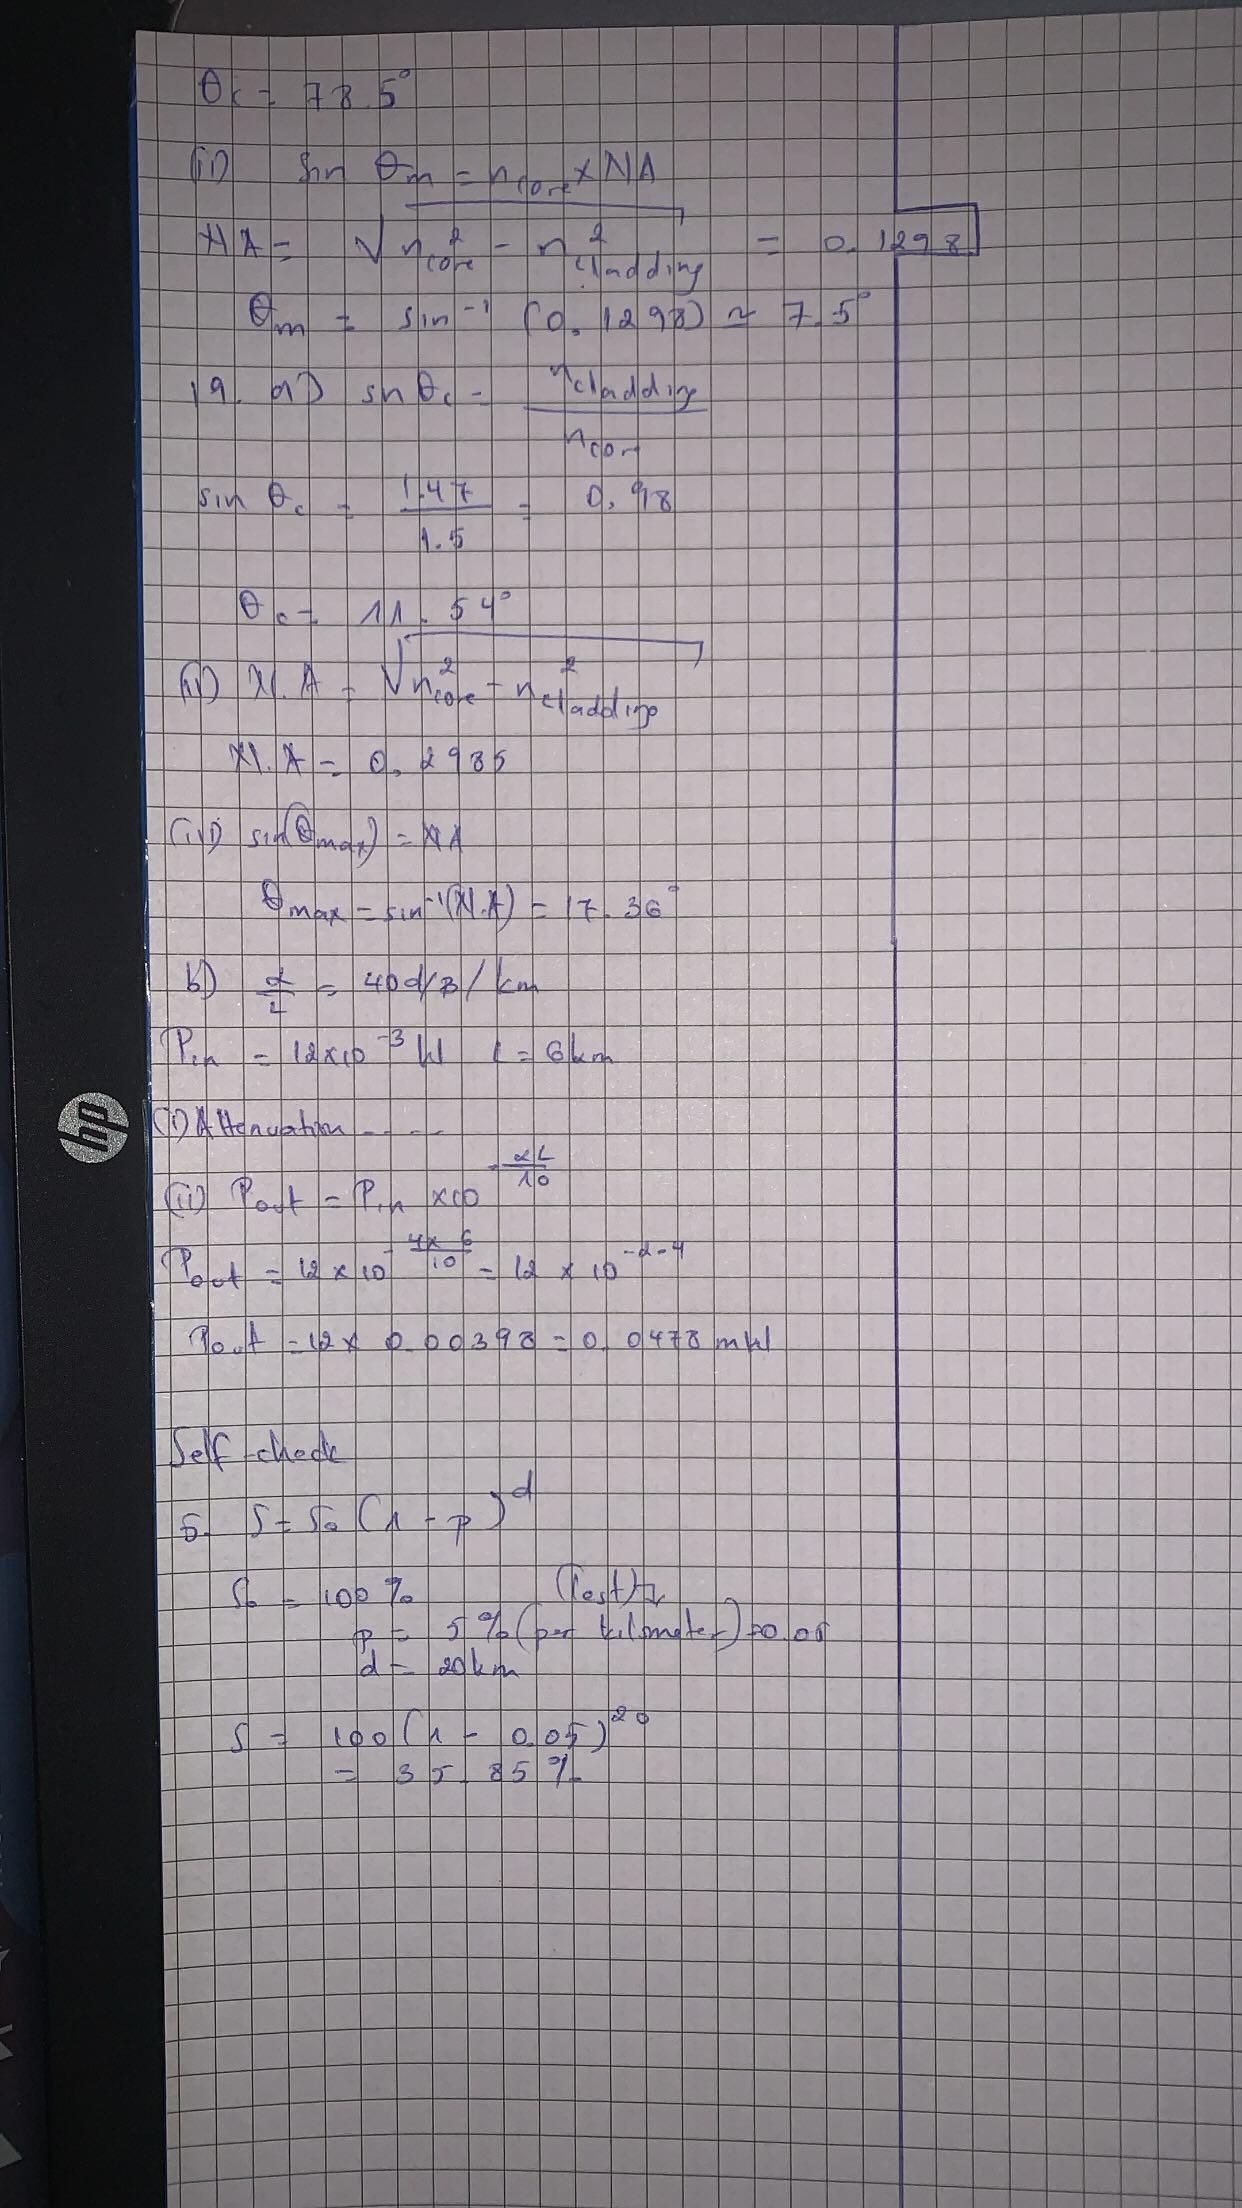 θc = 78.5°
(ii) sin θm = ncore × NA
NA = √n²core - n²cladding = 0.1298
θm = sin⁻¹ (0.1298) ≃ 7.5°
19. a) sin θc = ncladding / ncor
sin θc = 1.47 / 1.5 = 0.98
θc = 11.54°
(ii) N.A = √n²core - n²cladding
N.A = 0.2985
(iii) sin(θmax) = NA
θmax = sin⁻¹(N.A) = 17.36°
b) α/L = 40dB/km
Pin = 12×10⁻³ W L = 6km
(i) Attenuation - - - -
(ii) Pout = Pin ×10^-αL/10
Pout = 12 × 10^-4×6/10 = 12 × 10^-2-4
Pout = 12 × 0.00398 = 0.0478 mW
hp
Self-check
5. S = S₀ (1 - p)^d
S₀ = 100%
(lost)
p = 5% (per kilometer) = 0.05
d = 20km
S = 100 (1 - 0.05)²⁰
= 35.85%